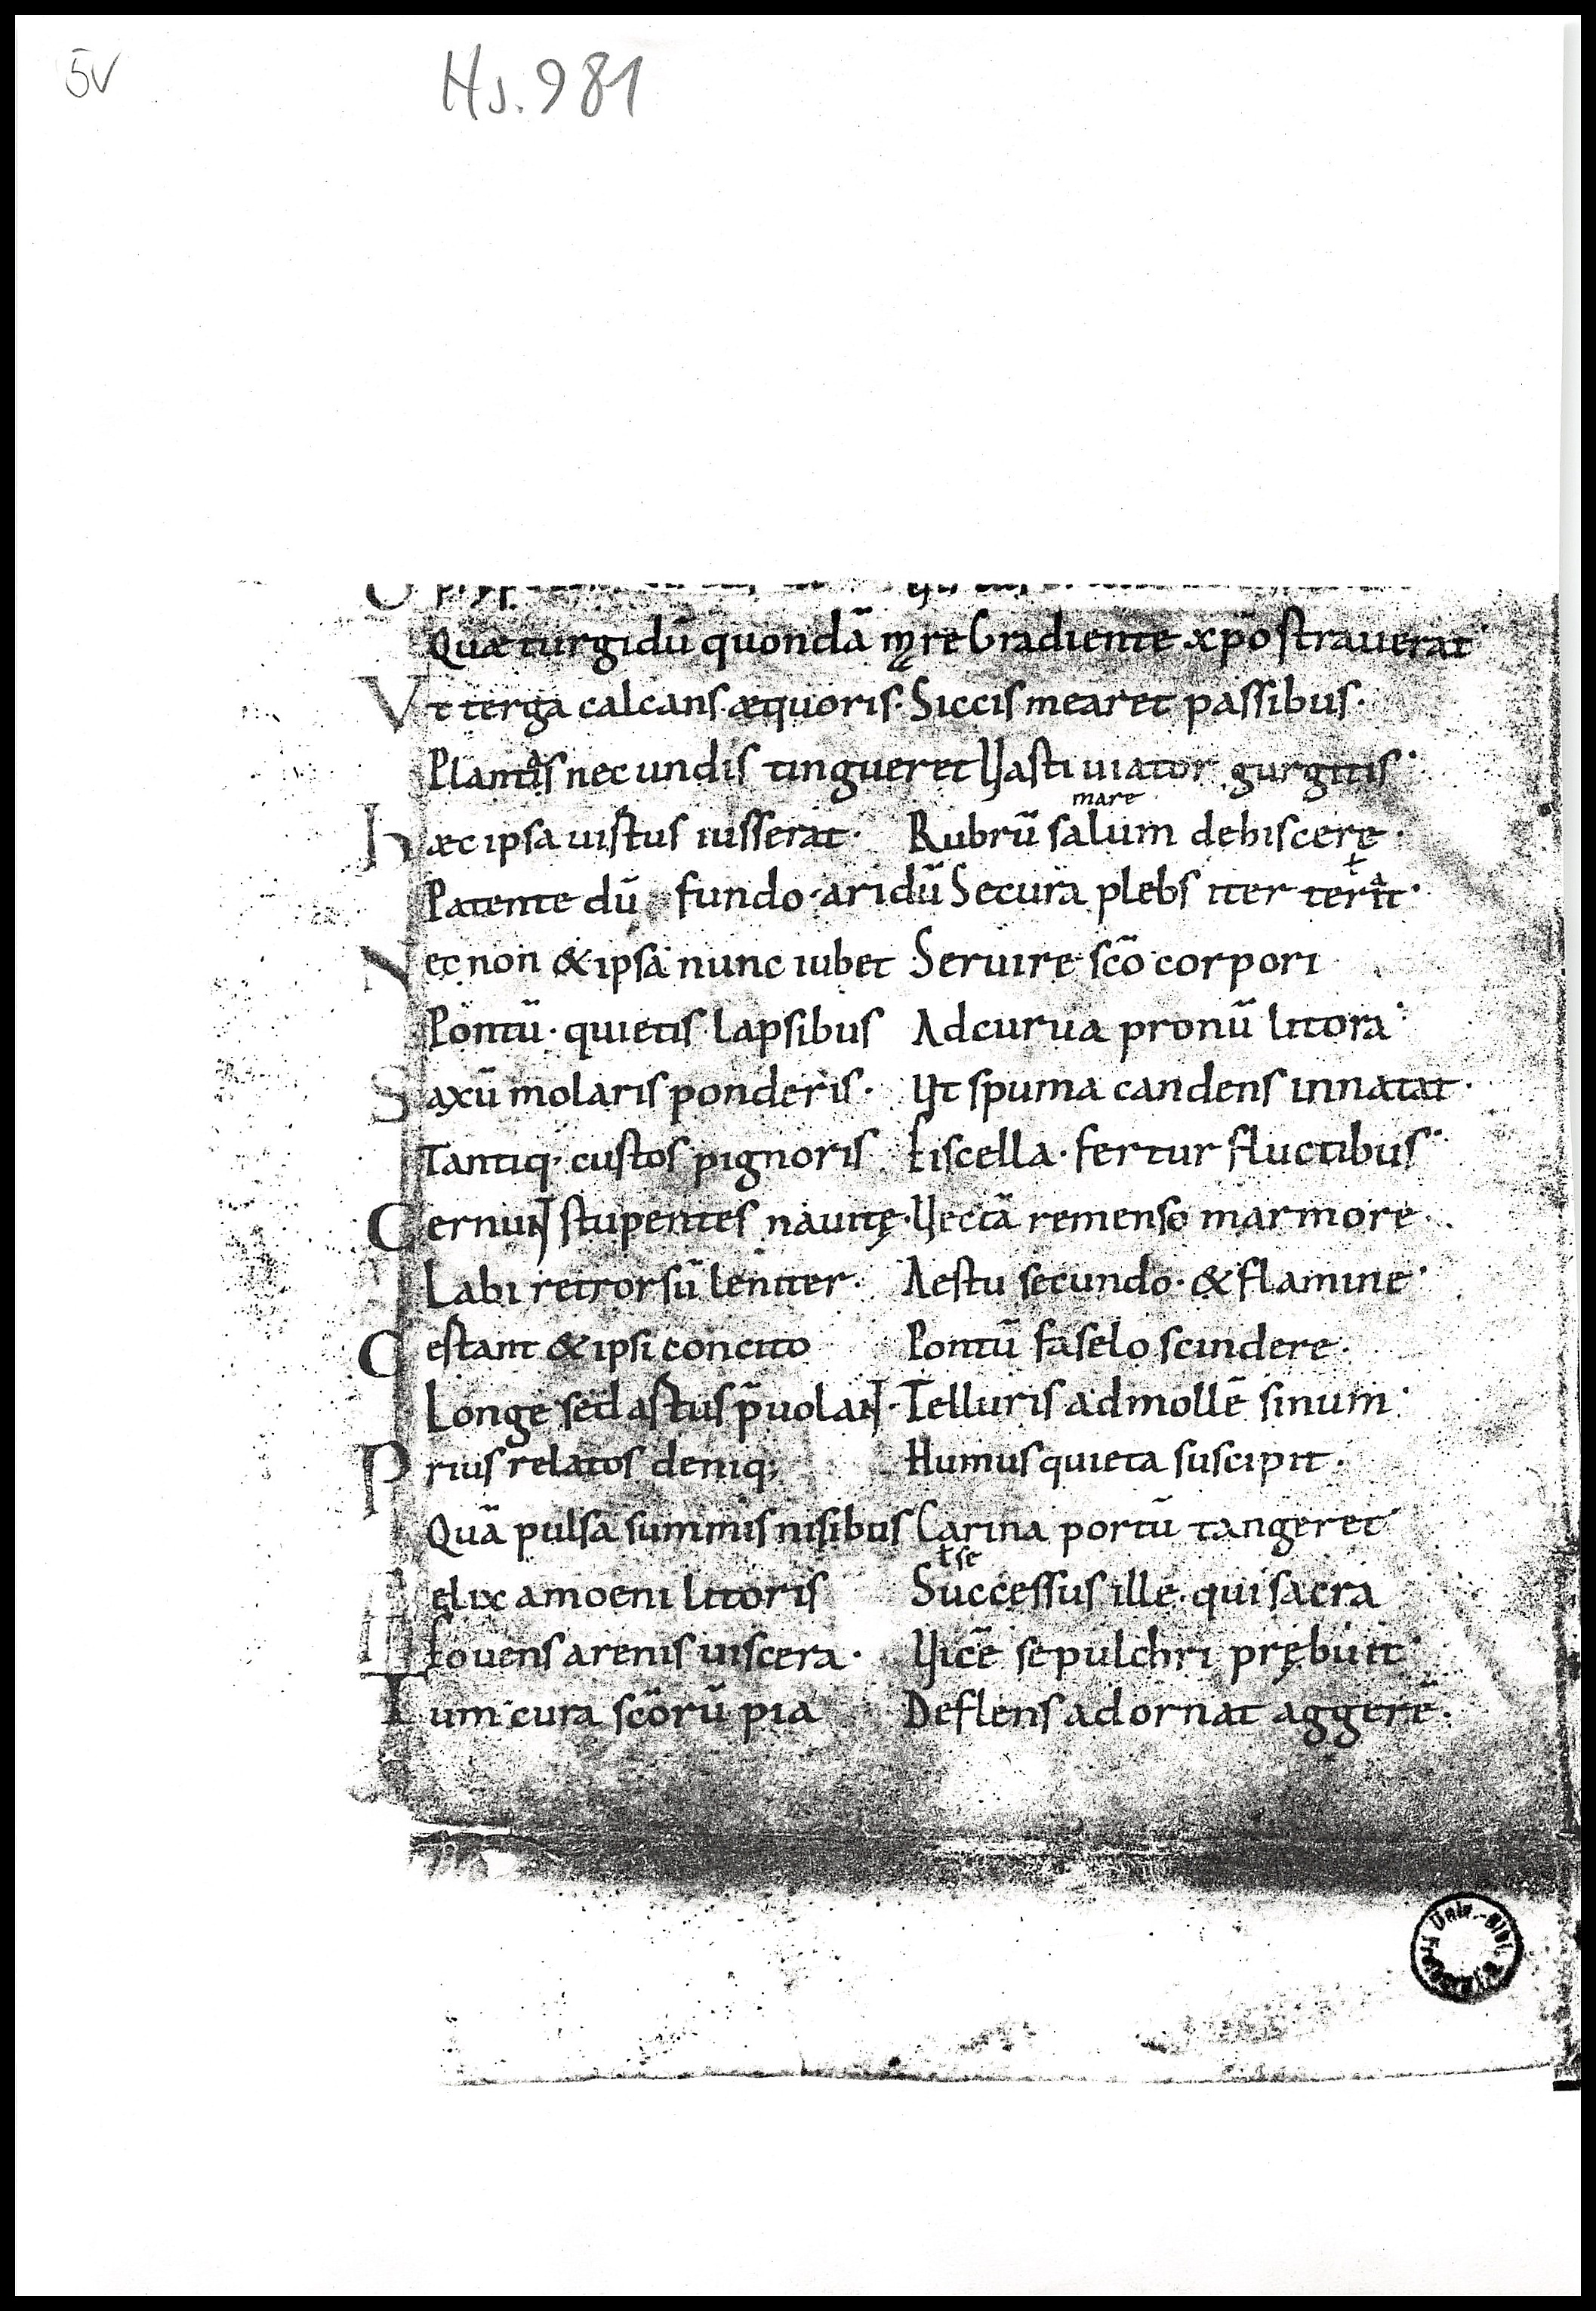 5v
Hs. 981
Quæ turgidū quondā m̨re Gradiente xp̄o straverat·
Vt terga calcans æquoris· Siccis mearet passibus·
Plantas nec undis tingueret Vasti viator gurgitis·
mare
hæc ipsa uistus iusserat· Rubrū salum dehiscere·
Patente dū fundo· aridū Secura plebs iter terit·
Nec non & ipsa nunc iubet Seruire sc̄o corpori
Pontū· quietis lapsibus Ad curua pronū litora·
Saxū molaris ponderis· Vt spuma candens innatat·
Tantiq· custos pignoris Fiscella· fertur fluctibus·
Cernunt stupentes nautę· Vectā remenso marmore·
Labi retrorsū leniter· Aestu secundo· & flamine·
Certant & ipsi concito Pontū faselo scindere·
Longe sed astus p̄uolant· Telluris ad mollē sinum·
Prius relatos deniq; Humus quieta suscipit·
Quā pulsa summis nisibus Carina portū tangeret
ł se
elix amoeni litoris Successus ille· qui sacra
Fouens arenis uiscera· Vicē sepulchri prębuit·
Tum cura sc̄orū pia Deflens adornat aggerē·
Univ.-Bibl.